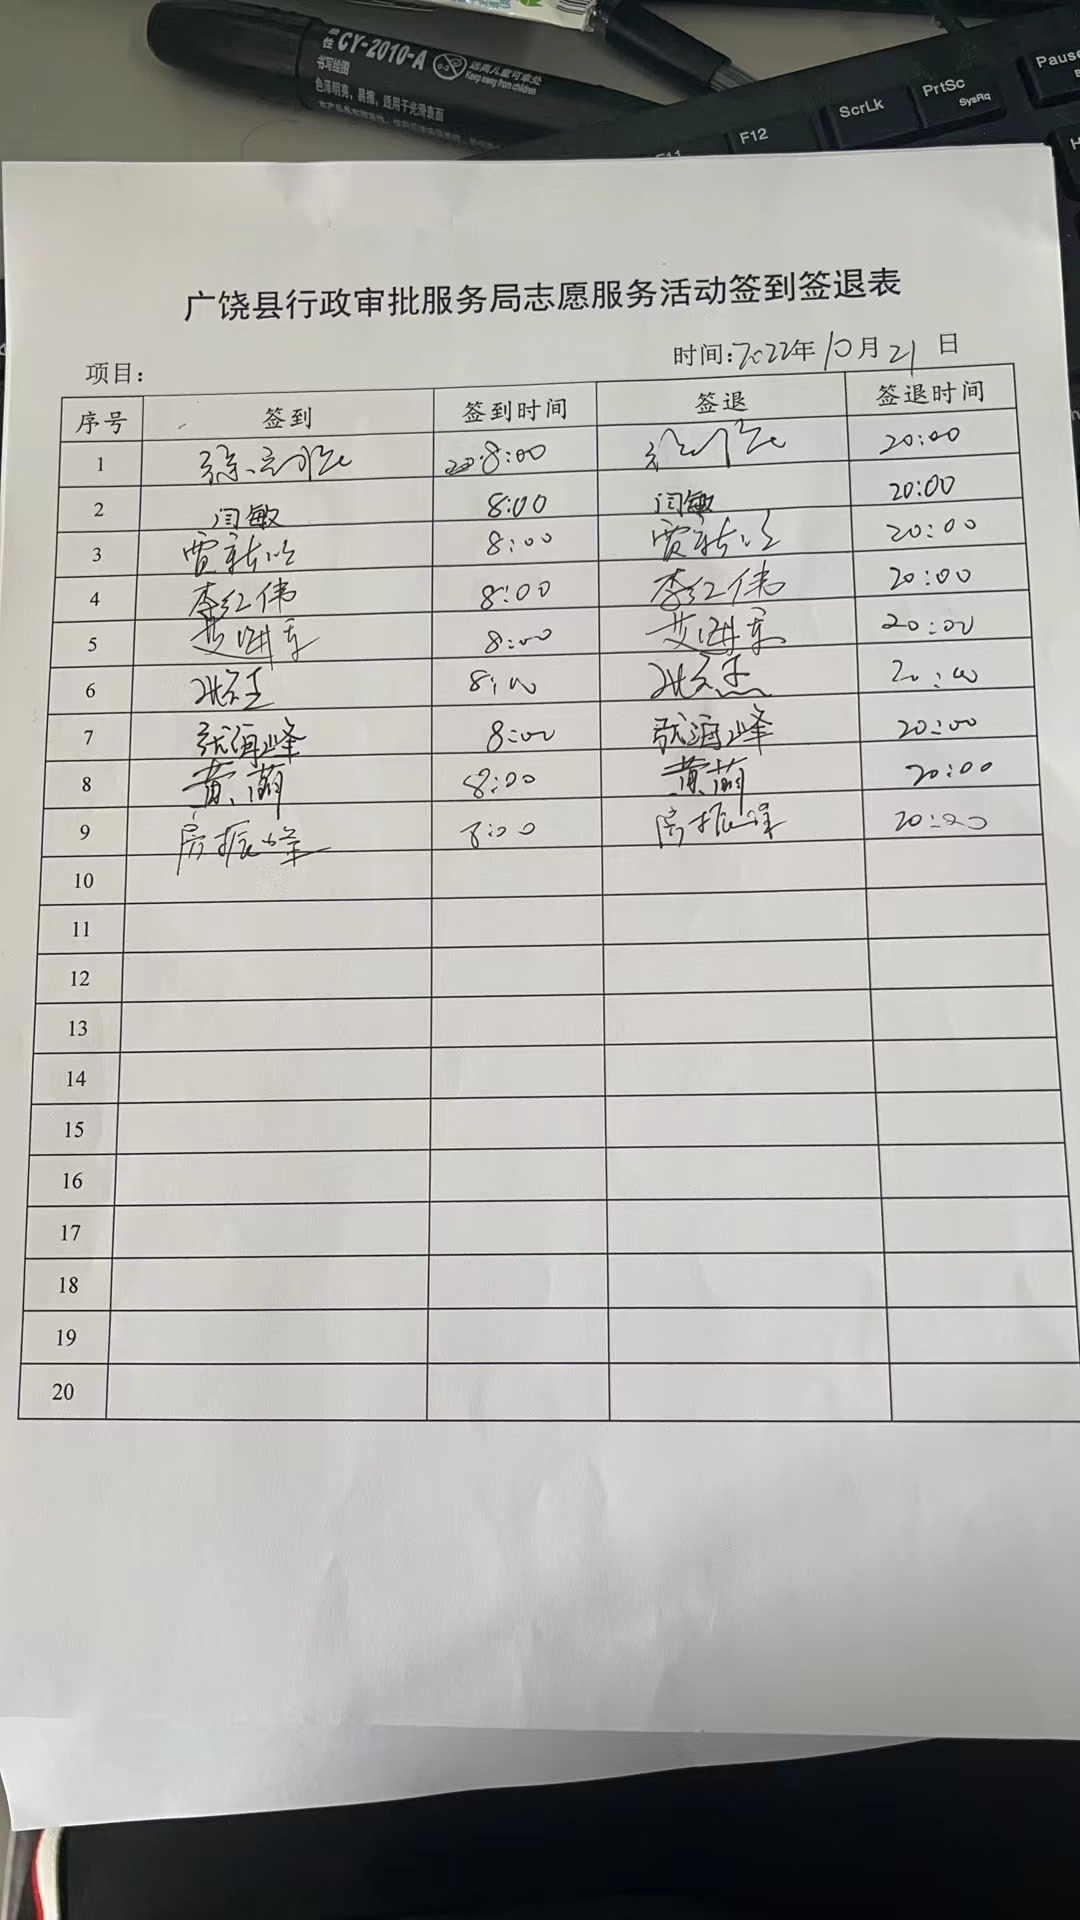 CY-2010-A
书写绘图
远离儿童可拿处
Keep away from children
色泽明亮，易擦，适用于光滑表面
F11
F12
ScrLk
PrtSc
SysRq
Pause
广饶县行政审批服务局志愿服务活动签到签退表
项目：
时间：2022年10月21日
序号 签到 签到时间 签退 签退时间
1 8:00 20:00
2 闫敏 8:00 闫敏 20:00
3 贾 8:00 贾 20:00
4 李红伟 8:00 李红伟 20:00
5 8:00 20:00
6 8:00 20:00
7 张海峰 8:00 张海峰 20:00
8 黄萌 8:00 黄萌 20:00
9 房振峰 8:00 房振峰 20:00
10
11
12
13
14
15
16
17
18
19
20